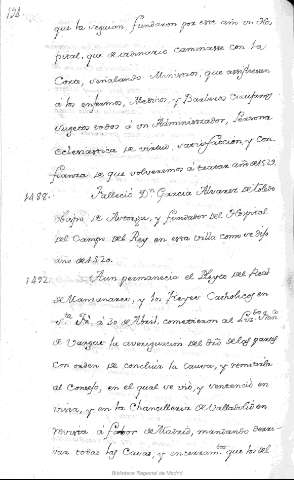 138
que la seguian, fundaron por este año un Hos-
pital, que de ordinario caminasse con la
Corte, señalando Ministros, que assistiesen
á los enfermos, Medicos, y Barberos Cirujanos
sugetos todos á un Administrador, Persona
Eclesiastica de virtud, satisfaccion, y con-
fianza de que volveremos á tratar año de 1529.
1488. Falleció Dn. Garcia Alvarez de Toledo
Obispo de Astorga, y fundador del Hospital
del Campo del Rey en esta villa como se dijo
año de 1520.
1492. Aun permanecia el Pleyto del Real
de Manzanares, y los Reyes Catholicos en
Sta. Fé, á 30 de Abril, cometieron al
de Vargas la averiguacion del dro de las partes
con orden de concluir la causa, y remitirla
al Consejo, en el qual se vió, y sentenció en
vista, y en la Chancilleria de Valladolid en
revista á fabor de Madrid, mandando derri-
var todas las Casas, y encerram.tos que los del
Biblioteca Regional de Madrid